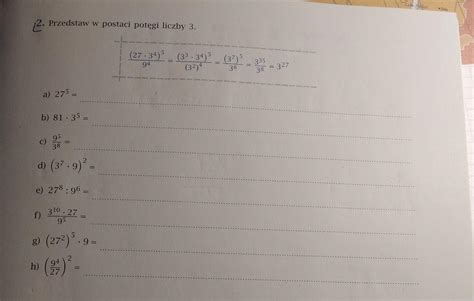 2. Przedstaw w postaci potęgi liczby 3.
(27 · 3⁴)⁵ / 9⁴ = (3³ · 3⁴)⁵ / (3²)⁴ = (3⁷)⁵ / 3⁸ = 3³⁵ / 3⁸ = 3²⁷
a) 27⁵ =
b) 81 · 3⁵ =
c) 9⁵ / 3⁸ =
d) (3⁷ · 9)² =
e) 27⁸ : 9⁶ =
f) 3¹⁰ · 27 / 9⁵ =
g) (27²)⁵ · 9 =
h) (9⁴ / 27)² =